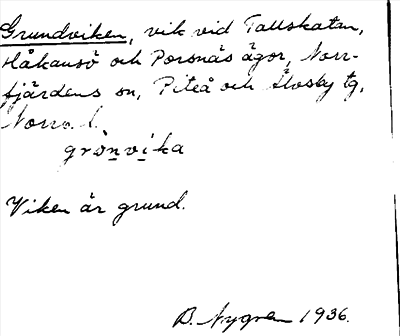 Grundviken, vik vid Tallskatan,
Håkansö och Porsnäs ägor, Norr-
fjärdens sn, Piteå och Älvsby tg,
Norrb. l.
grònvika
Viken är grund.
B. Nygren 1936.